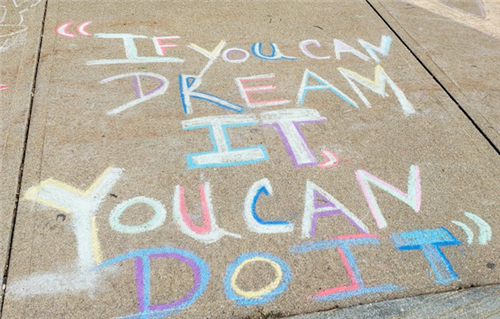 "IF YOU CAN
DREAM
IT,
YOU CAN
DO IT"